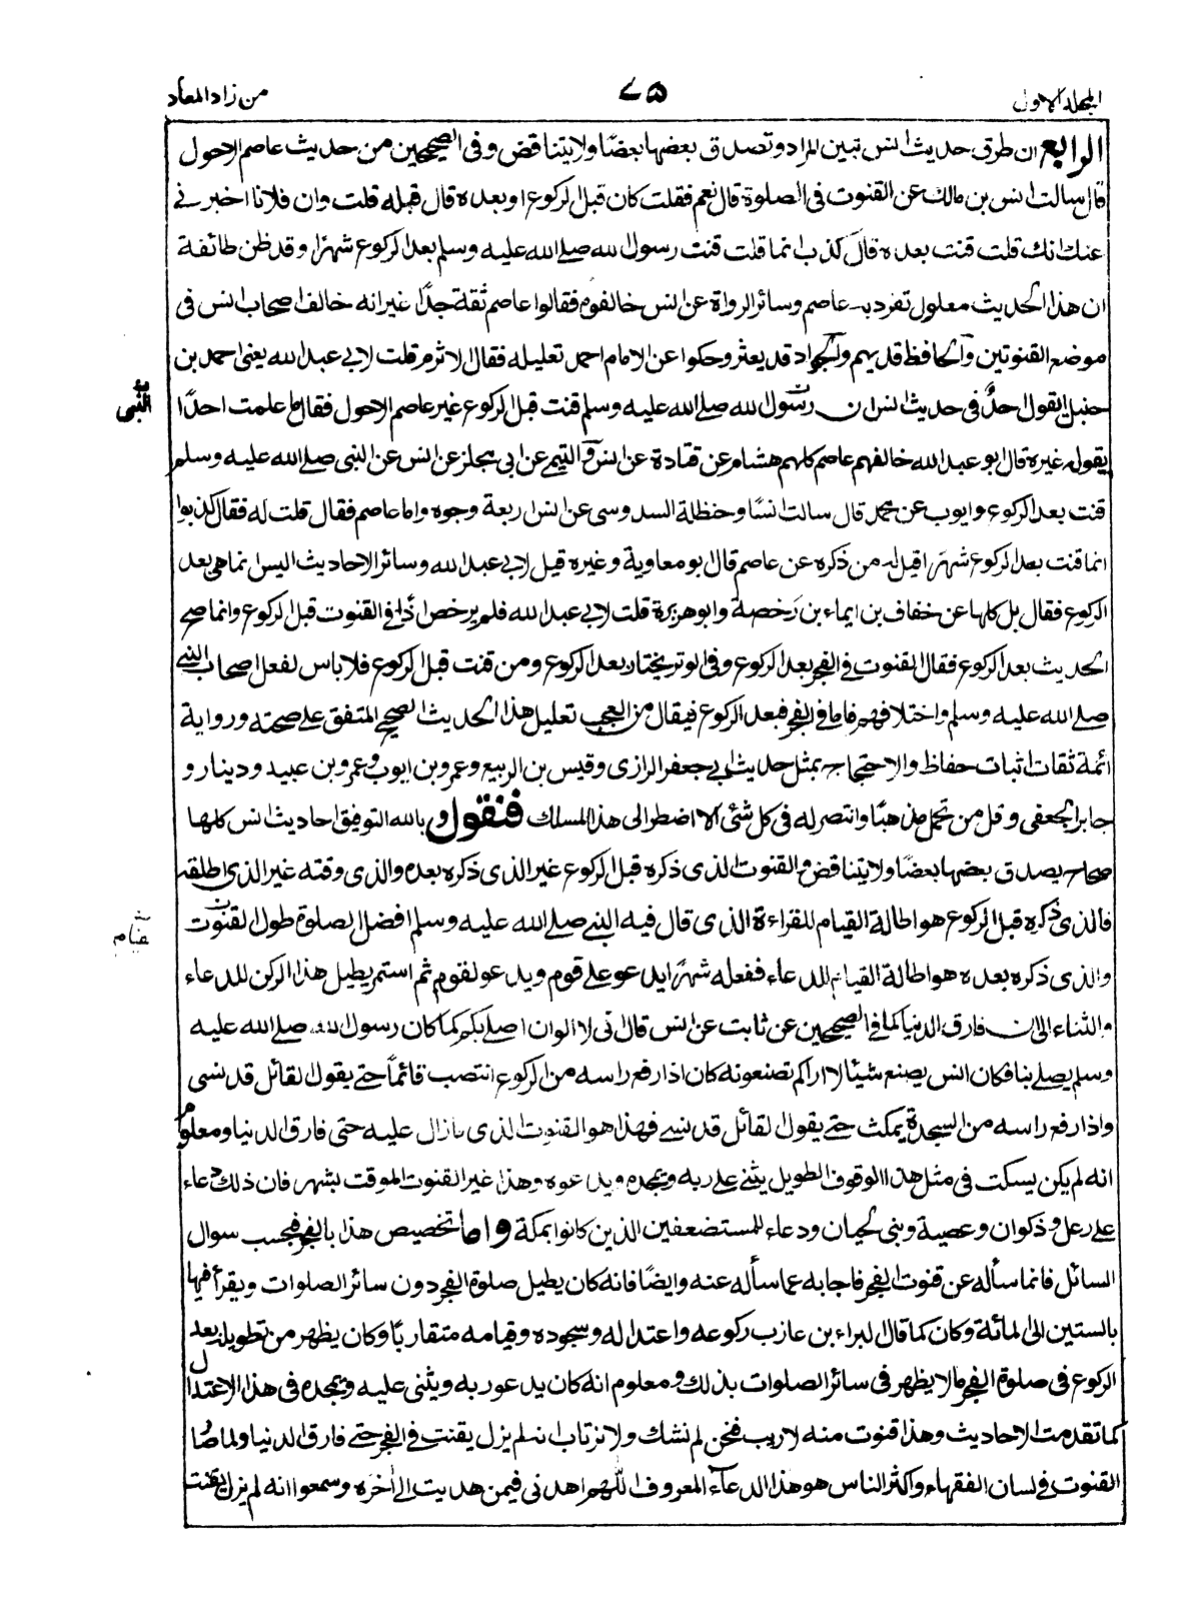 المجلد الاول
٧٥
من زاد المعاد
الرابع ان طرق حديث انس تبين المراد وتصدق بعضها بعضًا ولا يتناقض وفى الصحيحين من حديث عاصم الاحول
قال سالت انس بن مالك عن القنوت فى الصلوة قال نعم فقلت كان قبل الركوع او بعده قال قبله قلت وان فلانا اخبرنى
عنك انك قلت قنت بعده قال كذب انما قلت قنت رسول الله صلى الله عليه وسلم بعد الركوع شهرًا وقد ظن طائفة
ان هذا الحديث معلول تفرد به عاصم وسائر الرواة عن انس خالفوه فقالوا عاصم ثقة جدًا غير انه خالف اصحاب انس فى
موضع القنوتين والحافظ قد يهم والجواد قد يعثر وحكوا عن الامام احمد تعليله فقال الاثرم قلت لابى عبد الله يعنى احمد بن
حنبل ايقول احدٌ فى حديث انس ان رسول الله صلى الله عليه وسلم قنت قبل الركوع غير عاصم الاحول فقال ما علمت احدًا
النبى
يقوله غيره قال ابو عبد الله خالفهم عاصم كلهم هشام عن قتادة عن انس والتيمى عن ابى مجلز عن انس عن النبى صلى الله عليه وسلم
قنت بعد الركوع وايوب عن محمد قال سالت انسًا وحنظلة السدوسى عن انس اربعة وجوه واما عاصم فقال قلت له فقال كذبوا
انما قنت بعد الركوع شهرًا قيل له من ذكره عن عاصم قال ابو معاوية وغيره قيل لابى عبد الله وسائر الاحاديث اليس انما هى بعد
الركوع فقال بل كلها عن خفاف بن ايماء بن رَخصة وابو هريرة قلت لابى عبد الله فلم يرخص اذًا فى القنوت قبل الركوع وانما صح
الحديث بعد الركوع فقال القنوت فى الفجر بعد الركوع وفى الوتر يختار بعد الركوع ومن قنت قبل الركوع فلا باس لفعل اصحاب النبى
صلى الله عليه وسلم واختلافهم فاما فى الفجر فبعد الركوع فيقال من العجب تعليل هذا الحديث الصحيح المتفق على صحته ورواية
ائمة ثقات اثبات حفاظ والاحتجاج بمثل حديث ابى جعفر الرازى وقيس بن الربيع وعمرو بن ايوب وعمرو بن عبيد ودينار و
جابر الجعفى وقل من تحمل مذهبًا وانتصر له فى كل شئ الا اضطر الى هذا المسلك فنقول وبالله التوفيق احاديث انس كلها
صحاح يصدق بعضها بعضًا ولا يتناقض والقنوت الذى ذكره قبل الركوع غير الذى ذكره بعده والذى وقته غير الذى اطلقه
فالذى ذكره قبل الركوع هو اطالة القيام للقراءة الذى قال فيه النبى صلى الله عليه وسلم افضل الصلوة طول القنوت
قيام
والذى ذكره بعده هو اطالة القيام للدعاء ففعله شهرًا يدعو على قوم ويدعو لقوم ثم استمر يطيل هذا الركن للدعاء
والثناء الى ان فارق الدنيا كما فى الصحيحين عن ثابت عن انس قال انى لا الوان اصلى بكم كما كان رسول الله صلى الله عليه
وسلم يصلى بنا فكان انس يصنع شيئًا لا اراكم تصنعونه كان اذا رفع راسه من الركوع انتصب قائمًا حتى يقول القائل قد نسى
واذا رفع راسه من السجدة يمكث حتى يقول القائل قد نسى فهذا هو القنوت الذى مازال عليه حتى فارق الدنيا ومعلوم
انه لم يكن يسكت فى مثل هذا الوقوف الطويل يثنى على ربه ويمجده ويدعوه وهذا غير القنوت الموقت بشهر فان ذلك دعاء
على رعل وذكوان وعصية وبنى لحيان ودعاء للمستضعفين الذين كانوا بمكة واما تخصيص هذا بالفجر فبحسب سوال
السائل فانما سأله عن قنوت الفجر فاجابه عما سأله عنه وايضًا فانه كان يطيل صلوة الفجر دون سائر الصلوات ويقرأ فيها
بالستين الى المائة وكان كما قال البراء بن عازب ركوعه واعتداله وسجوده وقيامه متقاربًا وكان يظهر من تطويله بعد
الركوع فى صلوة الفجر مالا يظهر فى سائر الصلوات بذلك ومعلوم انه كان يدعو ربه ويثنى عليه ويمجده فى هذا الاعتدال
كما تقدمت الاحاديث وهذا قنوت منه لاريب فنحن لم نشك ولا نرتاب انه لم يزل يقنت فى الفجر حتى فارق الدنيا ولما صار
القنوت فى لسان الفقهاء واكثر الناس هو هذا الدعاء المعروف اللهم اهدنى فيمن هديت الى أخره وسمعوا انه لم يزل يقنت